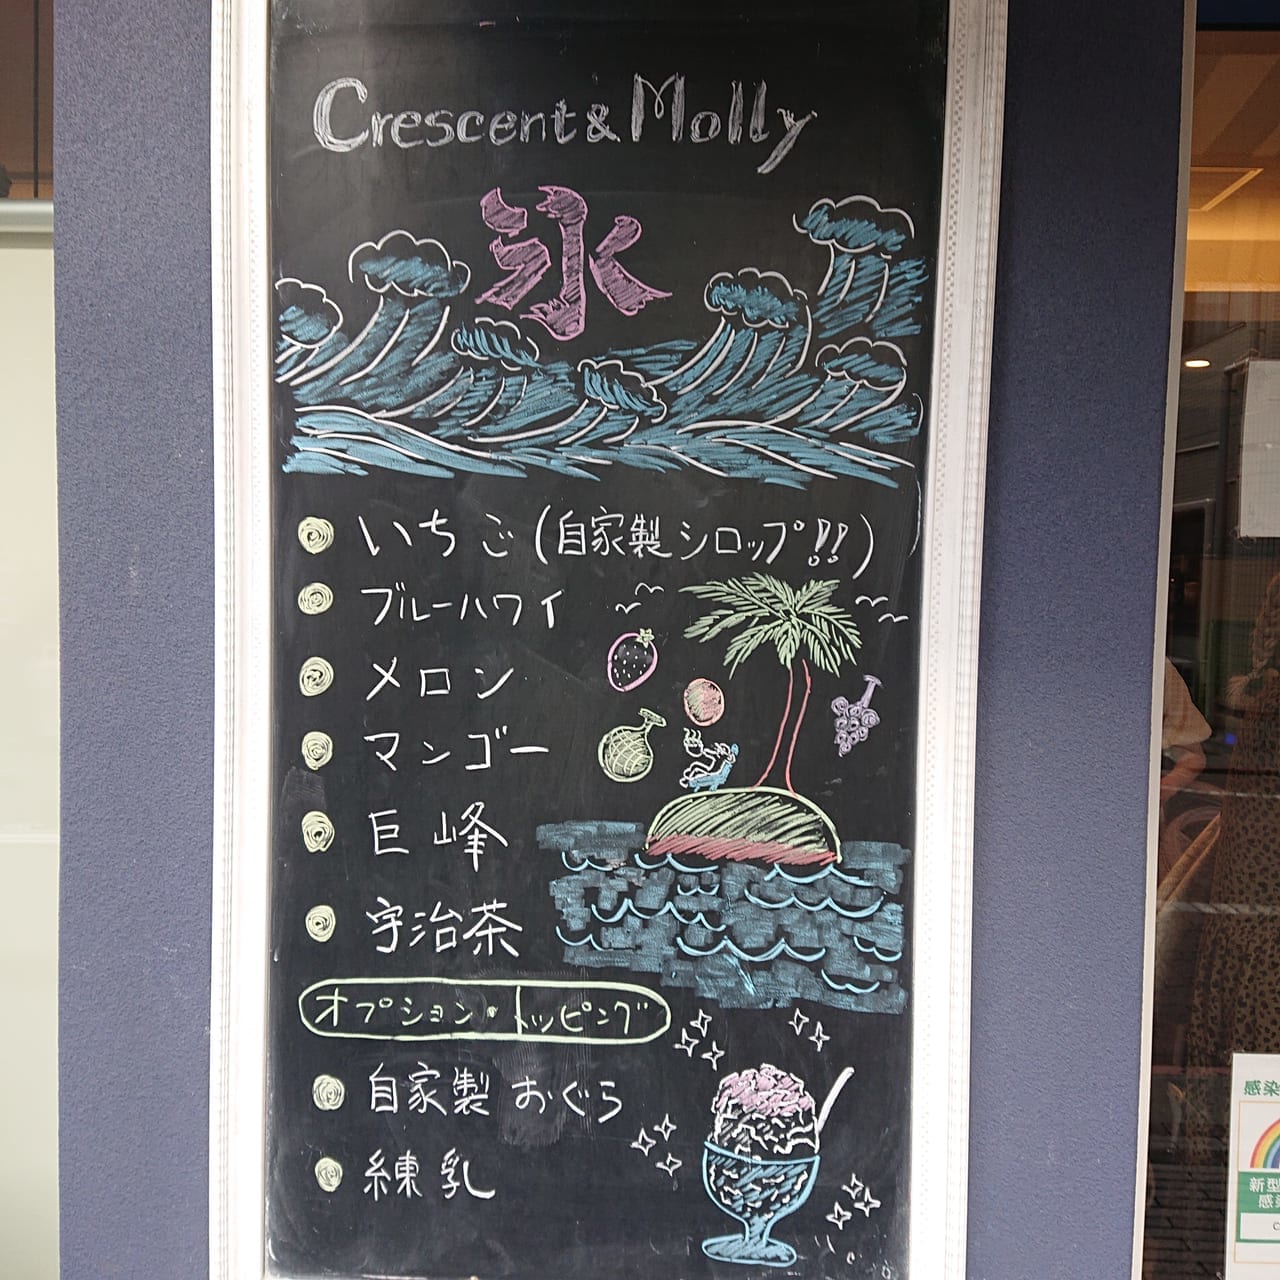 Crescent & Molly
氷
いちご(自家製シロップ!!)
ブルーハワイ
メロン
マンゴー
巨峰
宇治茶
オプション・トッピング
自家製 おぐら
練乳
感染
新型
感染